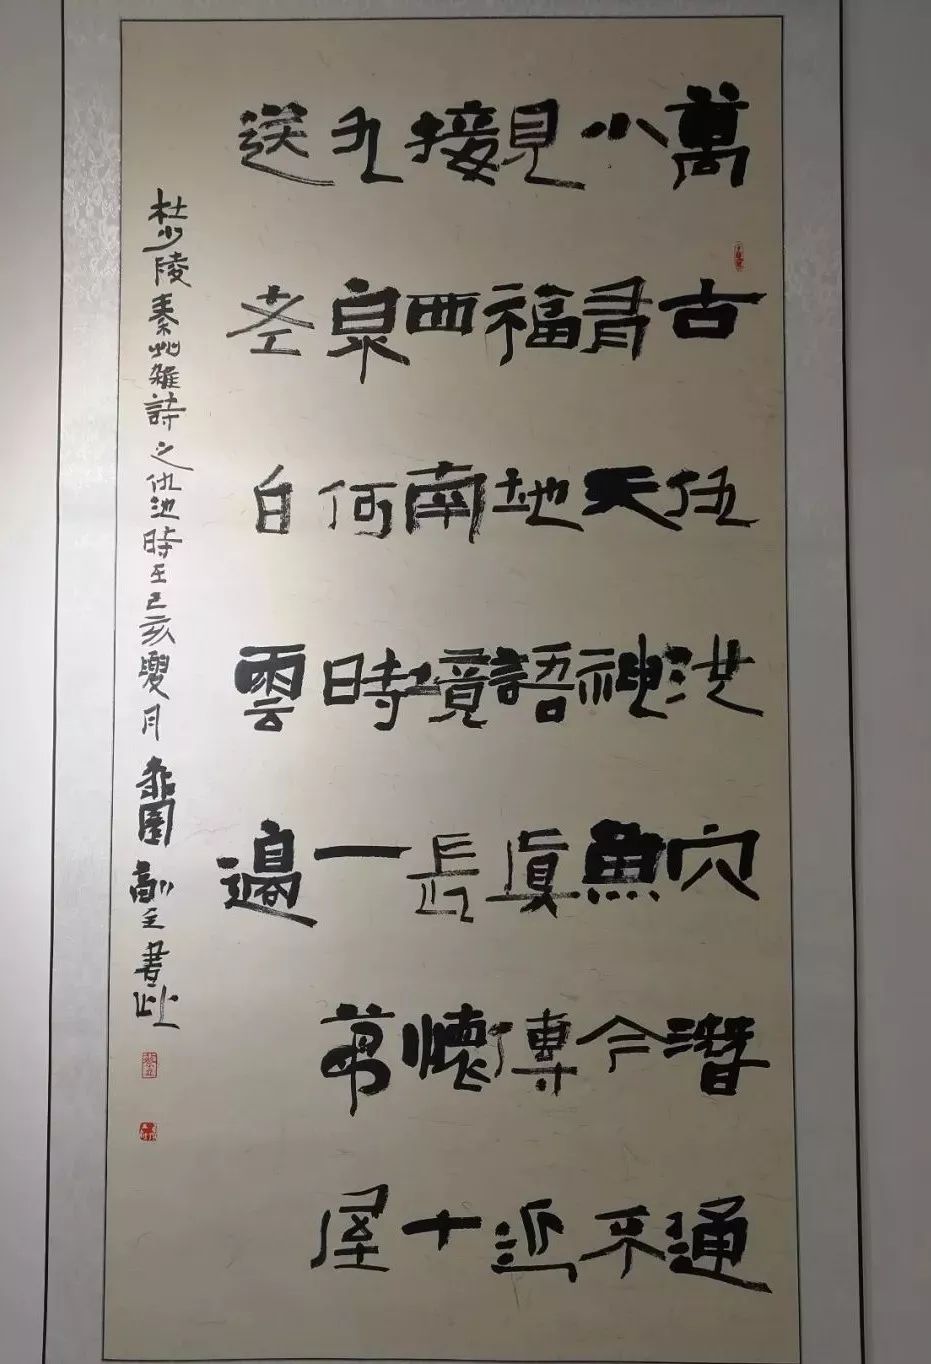 萬古仇池穴潛通
小有天神魚今不
見福地語真傳近
接西南境長懷十
九泉何時一茅屋
送老白雲邊
杜少陵秦州雜詩之仇池時在己亥夏月 園 書